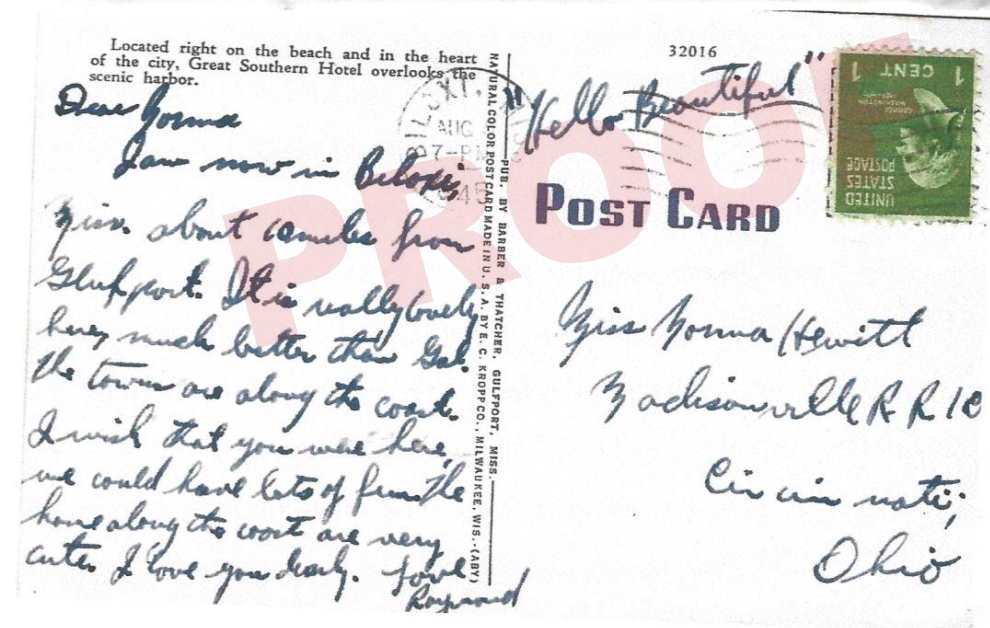 Located right on the beach and in the heart
of the city, Great Southern Hotel overlooks the
scenic harbor.
Dear Norma
I am now in Biloxi,
Miss. about 10 miles from
Gulfport. It is really lovely
here, much better than Gal.
The towns are along the coast.
I wish that you were here,
we could have lots of fun. The
home along the coast are very
cute. I love you dearly. Love,
Raymond
NATURAL COLOR POST CARD MADE IN U. S. A. BY E. C. KROPP CO., MILWAUKEE, WIS.-(ABY)
PUB. BY BARBER & THATCHER, GULFPORT, MISS.
BILOXI,
AUG
7-PM
32016
"Hello Beautiful"
POST CARD
1 CENT 1
GEORGE
WASHINGTON
UNITED
STATES
POSTAGE
Miss Norma Hewitt
Madisonville R R 10
Cincinnati,
Ohio
PROOF